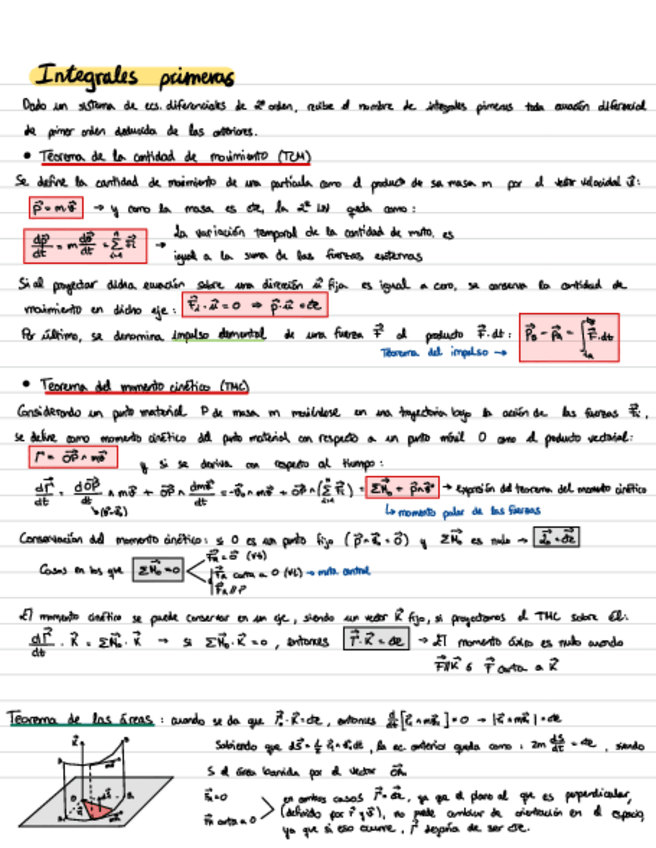 Integrales primeras
Dado un sistema de ecs. diferenciales de 2º orden, recibe el nombre de integrales primeras toda ecuación diferencial
de primer orden deducida de las anteriores.
• Teorema de la cantidad de movimiento (TCM)
Se define la cantidad de movimiento de una partícula como el producto de su masa m por el vector velocidad v⃗:
p⃗ = m·v⃗ → y como la masa es cte, la 2ª ley queda como:
dp⃗/dt = m dv⃗/dt = Σ F⃗i → la variación temporal de la cantidad de mvto. es
igual a la suma de las fuerzas externas
Si al proyectar dicha ecuación sobre una dirección u⃗ fija es igual a cero, se conserva la cantidad de
movimiento en dicho eje: F⃗i · u⃗ = 0 ⇒ p⃗·u⃗ = cte
Por último, se denomina impulso elemental de una fuerza F⃗ al producto F⃗·dt: p⃗B − p⃗A = ∫ F⃗·dt
Teorema del impulso →
• Teorema del momento cinético (TMC)
Considerando un punto material P de masa m moviéndose en una trayectoria bajo la acción de las fuerzas F⃗i,
se define como momento cinético del punto material con respecto a un punto móvil O como el producto vectorial:
Γ = OP⃗ ∧ mv⃗ y si se deriva con respecto al tiempo:
dΓ⃗/dt = dOP⃗/dt ∧ mv⃗ + OP⃗ ∧ dmv⃗/dt = -v⃗o ∧ mv⃗ + OP⃗ ∧ (Σ F⃗i) = ΣM⃗o + p⃗∧v⃗o → expresión del teorema del momento cinético
↳ momento polar de las fuerzas
Conservación del momento cinético: si O es un punto fijo (p⃗∧v⃗o = 0⃗) y ΣM⃗o es nulo →
Casos en los que ΣM⃗o = 0
F⃗R = 0⃗
F⃗R corta a O → mvto. central
El momento cinético se puede conservar en un eje, siendo un vector K⃗ fijo, si proyectamos el TMC sobre él:
dΓ⃗/dt · K⃗ = ΣM⃗o · K⃗ → si ΣM⃗o·K⃗ = 0, entonces Γ⃗·K⃗ = cte → El momento áxico es nulo cuando
F⃗∥K⃗ ó F⃗ corta a K⃗
Teorema de las áreas: cuando se da que Γ⃗o·K⃗ = cte, entonces
Sabiendo que la ec. anterior queda como: 2m dS/dt = cte, siendo
S el área barrida por el vector
en ambos casos Γ⃗ = cte, ya que el plano al que es perpendicular,
(definido por r⃗ y v⃗), no puede cambiar de orientación en el espacio,
ya que si eso ocurre, Γ⃗ dejaría de ser cte.